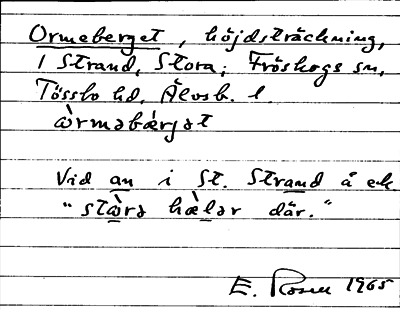 Ormeberget, höjdsträckning,
i Strand, Stora; Fröskogs sn,
Tössbo hd, Älvsb. l.
ẁrməbǽrgət
Vid an i St. Strand å ek
"stẁrə hæ̀lər där."
E. Rosell 1965